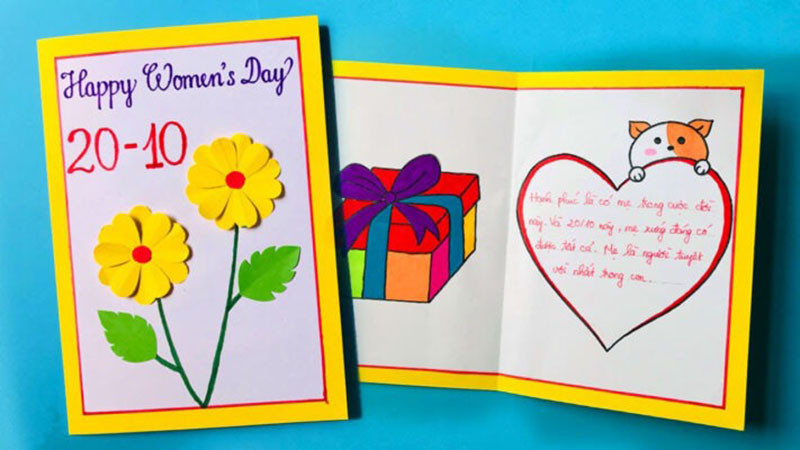 Happy Women's Day
20-10
Hạnh phúc là có mẹ trong cuộc đời
này. Và 20/10 này, mẹ xứng đáng có
được tất cả. Mẹ là người tuyệt
vời nhất trong con..........